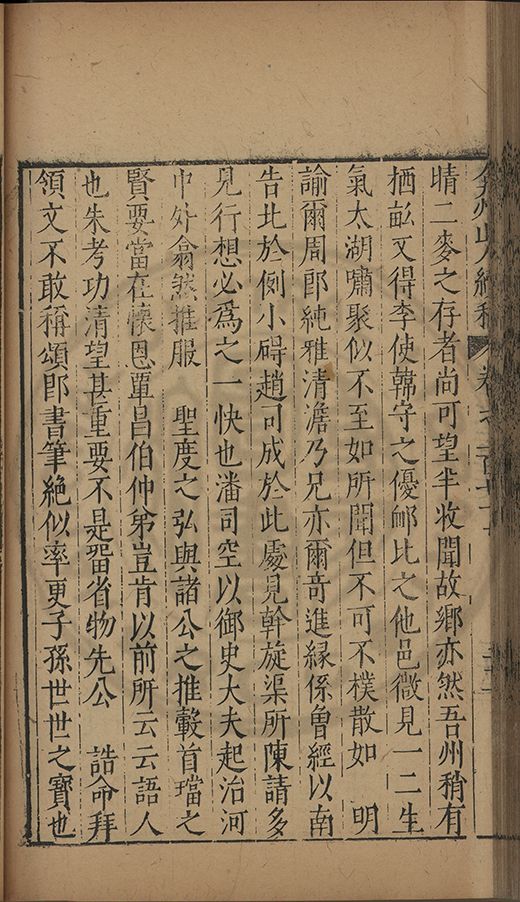 弇州山人續稿 卷之一百七十
晴二麥之存者尚可望半收聞故鄉亦然吾州稍有
栖畝又得李使韓守之優邮比之他邑微見一二生
氣太湖嘯聚似不至如所聞但不可不樸散如　明
諭爾周郎純雅清澹乃兄亦爾奇進緣係曾經以南
告北於側小碍趙可成於此處見幹旋渠所陳請多
見行想必爲之一快也潘司空以御史大夫起治河
中外翕然推服　聖度之弘與諸公之推轂首璫之
賢要當在懷恩覃昌伯仲弟豈肯以前所云云語人
也朱考功清望甚重要不是畱省物先公　誥命拜
領文不敢稱頌郎書筆絶似率更子孫世世之寶也